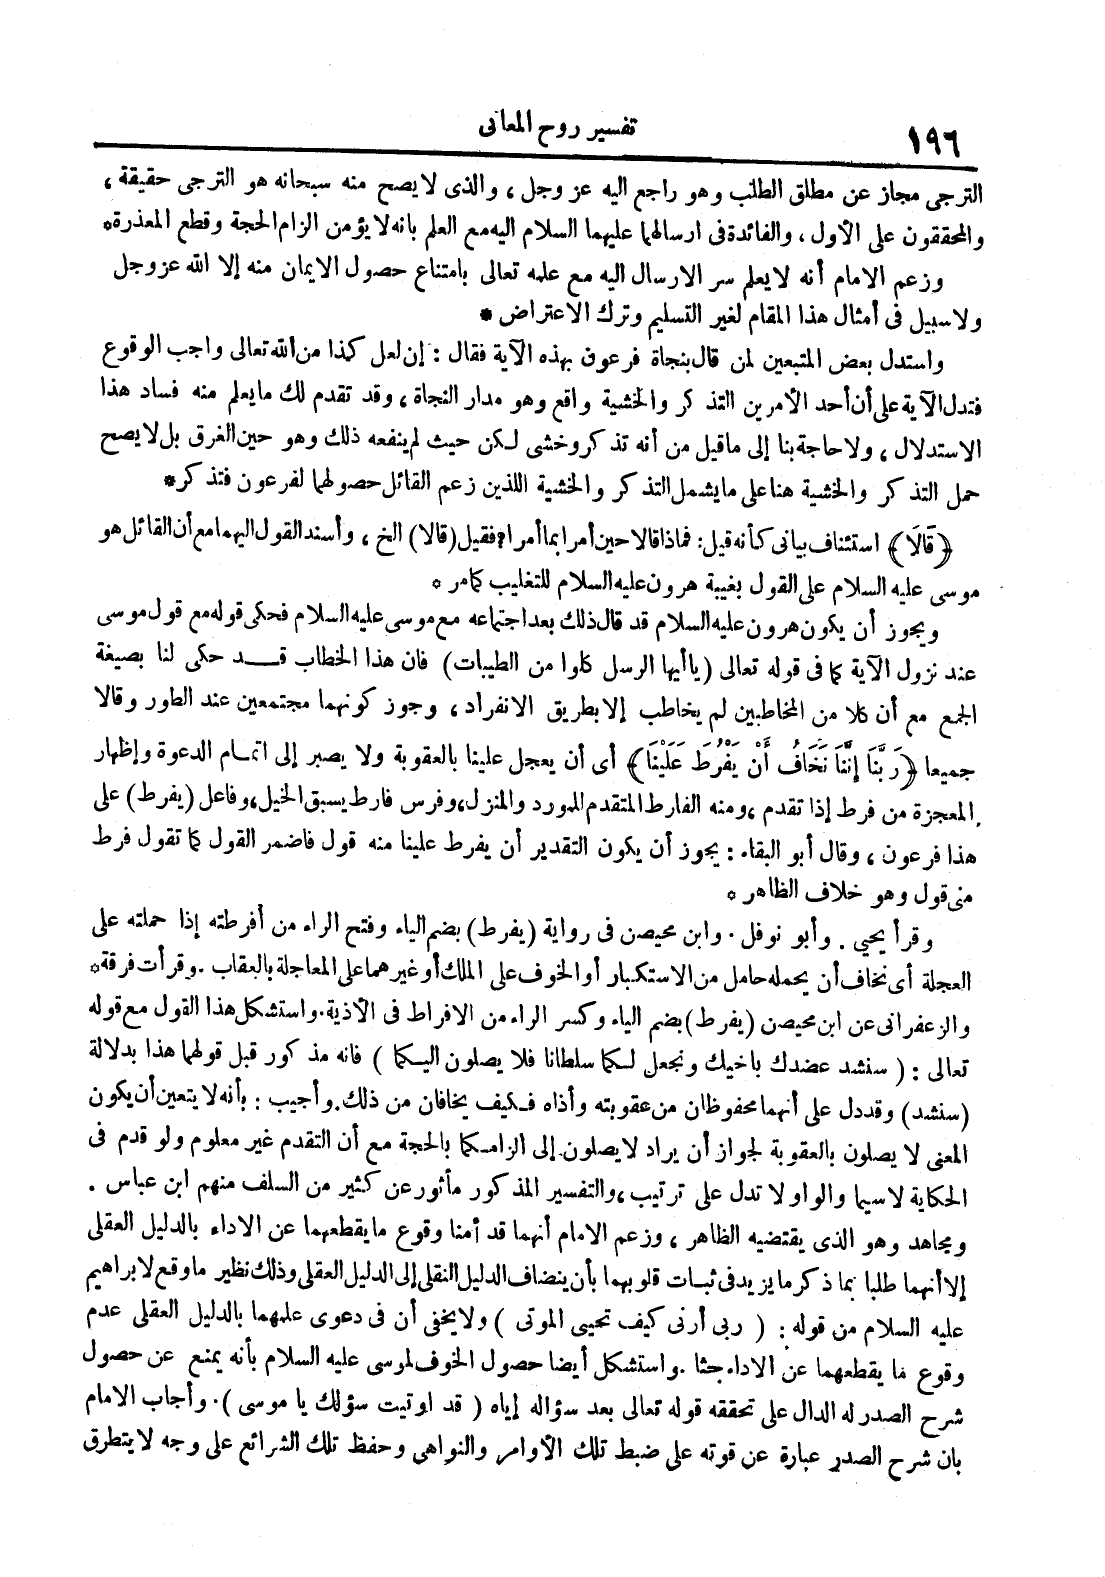 ١٩٦
تفسير روح المعانى
الترجى مجاز عن مطلق الطلب وهو راجع اليه عز وجل ، والذى لا يصح منه سبحانه هو الترجى حقيقة ،
والمحققون على الأول ، والفائدة فى ارسالهما عليهما السلام اليه مع العلم بانه لا يؤمن الزام الحجة وقطع المعذرة*
وزعم الامام أنه لا يعلم سر الارسال اليه مع علمه تعالى بامتناع حصول الايمان منه إلا الله عز وجل
ولا سبيل فى أمثال هذا المقام لغير التسليم وترك الاعتراض *
واستدل بعض المتبعين لمن قال بنجاة فرعون بهذه الآية فقال : إن لعل كذا من الله تعالى واجب الوقوع
فتدل الآية على أن أحد الأمرين التذكر والخشية واقع وهو مدار النجاة ، وقد تقدم لك ما يعلم منه فساد هذا
الاستدلال ، ولا حاجة بنا إلى ما قيل من أنه تذكر وخشى لكن حيث لم ينفعه ذلك وهو حين الغرق بل لا يصح
حمل التذكر والخشية هنا على ما يشمل التذكر والخشية اللذين زعم القائل حصولهما لفرعون فتذكر*
﴿قَالَا﴾ استئناف بيانى كأنه قيل: فماذا قالا حين أمرا بما أمرا؟ فقيل (قالا) الخ ، وأسند القول اليهما مع أن القائل هو
موسى عليه السلام على القول بغيبة هرون عليه السلام للتغليب كما مر *
ويجوز أن يكون هرون عليه السلام قد قال ذلك بعد اجتماعه مع موسى عليه السلام فحكى قوله مع قول موسى
عند نزول الآية كما فى قوله تعالى (يا أيها الرسل كلوا من الطيبات) فان هذا الخطاب قـد حكى لنا بصيغة
الجمع مع أن كلا من المخاطبين لم يخاطب إلا بطريق الانفراد ، وجوز كونهما مجتمعين عند الطور وقالا
جميعا ﴿رَبَّنَا إِنَّنَا نَخَافُ أَنْ يَفْرُطَ عَلَيْنَا﴾ أى أن يعجل علينا بالعقوبة ولا يصبر إلى اتمام الدعوة وإظهار
المعجزة من فرط إذا تقدم ، ومنه الفارط المتقدم للمورد والمنزل، وفرس فارط يسبق الخيل، وفاعل (يفرط) على
هذا فرعون ، وقال أبو البقاء : يجوز أن يكون التقدير أن يفرط علينا منه قول فاضمر القول كما تقول فرط
منى قول وهو خلاف الظاهر *
وقرأ يحيى . وأبو نوفل . وابن محيصن فى رواية (يفرط) بضم الياء وفتح الراء من أفرطته إذا حملته على
العجلة أى نخاف أن يحمله حامل من الاستكبار أو الخوف على الملك أو غيرهما على المعاجلة بالعقاب . وقرأت فرقة*
والزعفرانى عن ابن محيصن (يفرط) بضم الياء وكسر الراء من الافراط فى الأذية. واستشكل هذا القول مع قوله
تعالى : ( سنشد عضدك باخيك ونجعل لكما سلطانا فلا يصلون اليكما ) فانه مذكور قبل قولهما هذا بدلالة
(سنشد) وقد دل على أنهما محفوظان من عقوبته وأذاه فكيف يخافان من ذلك. وأجيب : بأنه لا يتعين أن يكون
المعنى لا يصلون بالعقوبة لجواز أن يراد لا يصلون إلى الزامكما بالحجة مع أن التقدم غير معلوم ولو قدم فى
الحكاية لا سيما والواو لا تدل على ترتيب، والتفسير المذكور مأثور عن كثير من السلف منهم ابن عباس .
ومجاهد وهو الذى يقتضيه الظاهر ، وزعم الامام أنهما قد أمنا وقوع ما يقطعهما عن الاداء بالدليل العقلى
إلا أنهما طلبا بما ذكر ما يزيد فى ثبات قلوبهما بأن ينضاف الدليل النقلى إلى الدليل العقلى وذلك نظير ما وقع لابراهيم
عليه السلام من قوله : ( ربى أرنى كيف تحيى الموتى ) ولا يخفى أن فى دعوى علمهما بالدليل العقلى عدم
وقوع ما يقطعهما عن الاداء بحثا . واستشكل أيضا حصول الخوف لموسى عليه السلام بأنه يمنع عن حصول
شرح الصدر له الدال على تحققه قوله تعالى بعد سؤاله إياه ( قد اوتيت سؤلك يا موسى ) . وأجاب الامام
بان شرح الصدر عبارة عن قوته على ضبط تلك الأوامر والنواهى وحفظ تلك الشرائع على وجه لا يتطرق